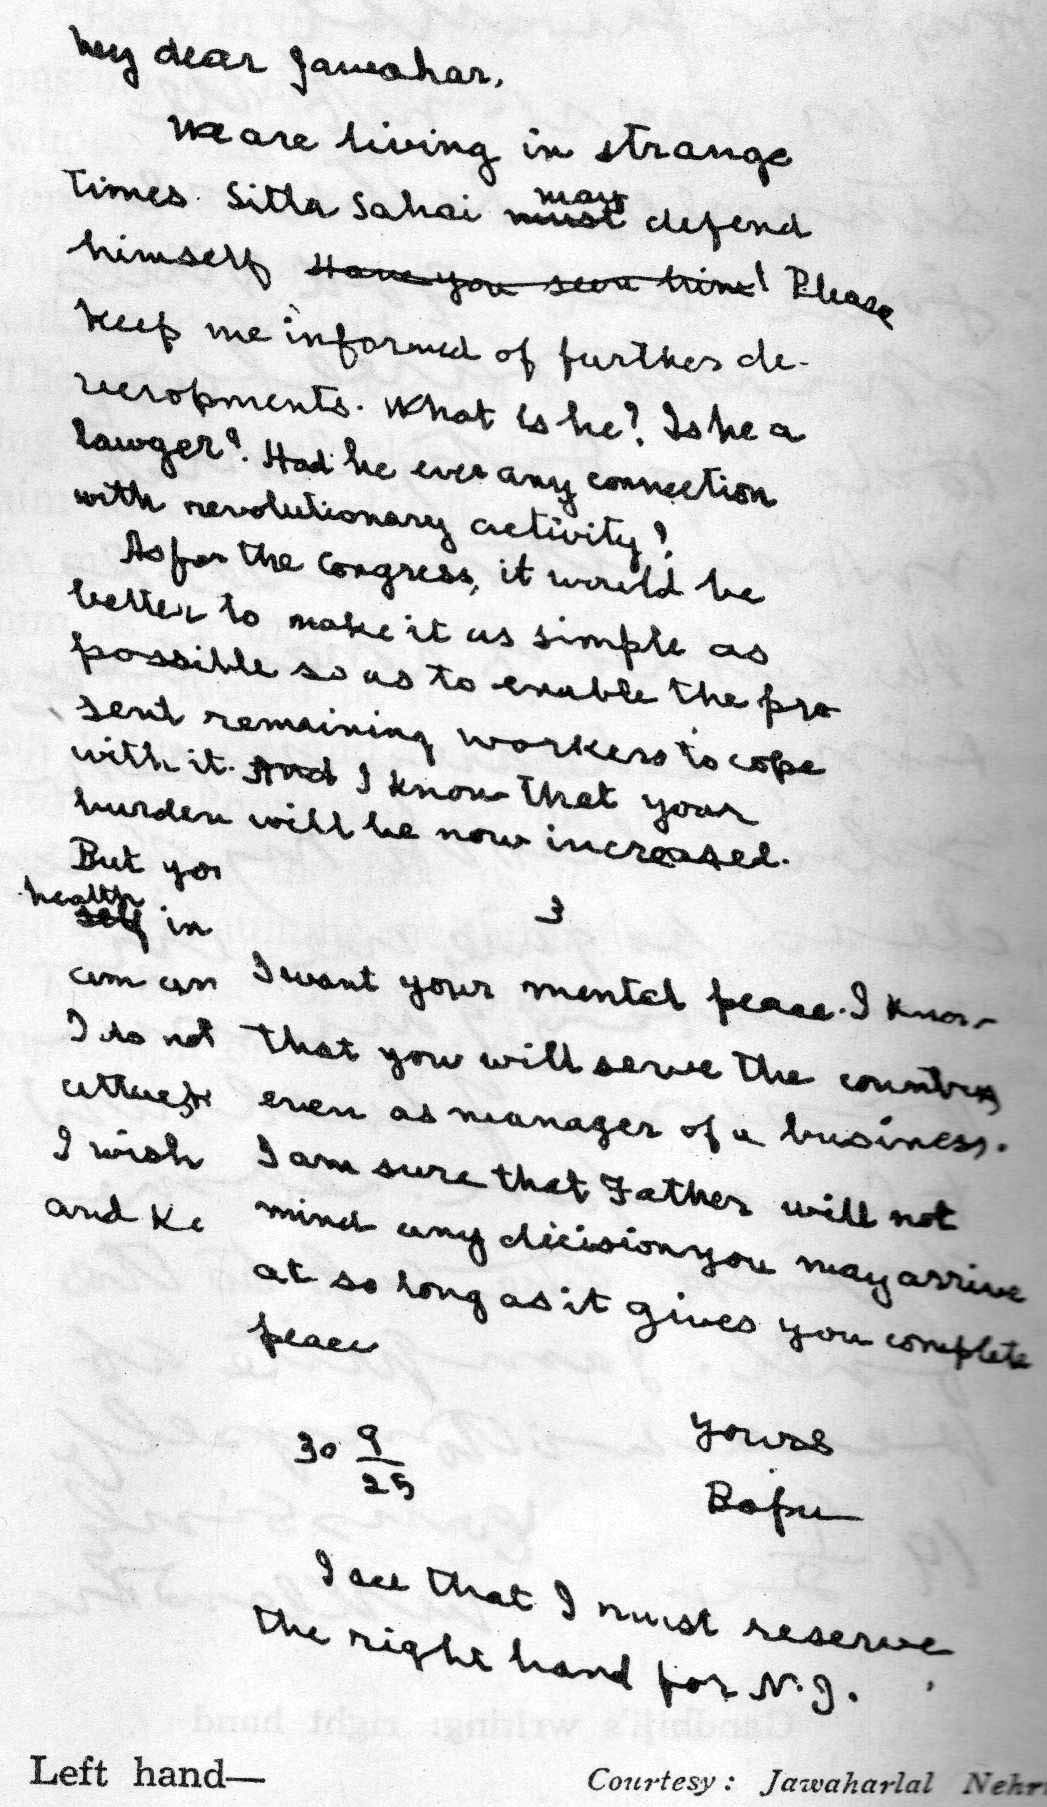 My dear Jawahar,
We are living in strange
times. Sitla Sahai may must defend
himself Have you seen him! Please
keep me informed of further de-
velopments. What is he? Is he a
lawyer? Had he ever any connection
with revolutionary activity?
As for the Congress, it would be
better to make it as simple as
possible so as to enable the pre
sent remaining workers to cope
with it. And I know that your
burden will be now increased.
But you
health
self in
I do not
I wish
and Ke
3
I want your mental peace. I know
that you will serve the country
even as manager of a business.
I am sure that Father will not
mind any dicision you may arrive
at so long as it gives you complete
peace
30 9/25
yours
Bapu
I see that I must reserve
the right hand for N. J.
Left hand—
Courtesy: Jawaharlal Nehr